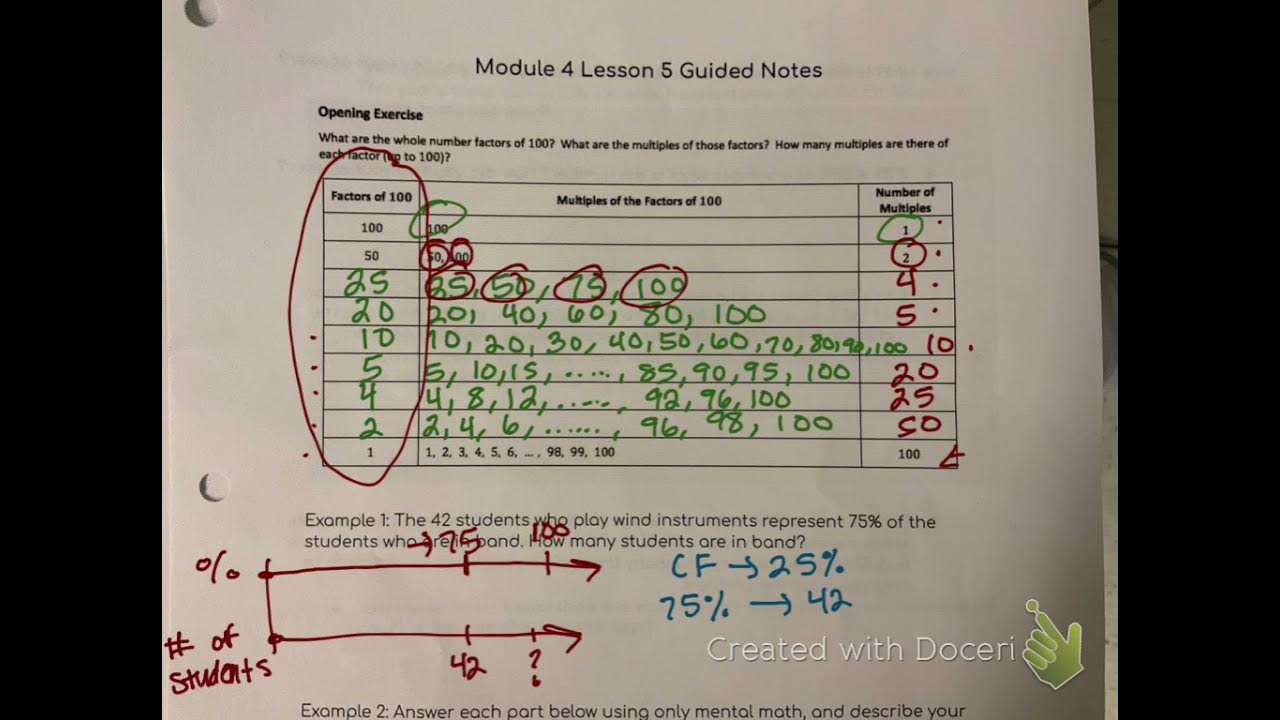 Module 4 Lesson 5 Guided Notes
Opening Exercise
What are the whole number factors of 100? What are the multiples of those factors? How many multiples are there of
each factor (up to 100)?
Factors of 100 Multiples of the Factors of 100 Number of Multiples
100 100 1
50 50, 100 2
25 25, 50, 75, 100 4
20 20, 40, 60, 80, 100 5
10 10, 20, 30, 40, 50, 60, 70, 80, 90, 100 10
5 5, 10, 15, ....., 85, 90, 95, 100 20
4 4, 8, 12, ....., 92, 96, 100 25
2 2, 4, 6, ......, 96, 98, 100 50
1 1, 2, 3, 4, 5, 6, ... , 98, 99, 100 100
Example 1: The 42 students who play wind instruments represent 75% of the
students who are in band. How many students are in band?
% → 75 100
CF → 25%
75% → 42
# of
students 42 ?
Created with Doceri
Example 2: Answer each part below using only mental math, and describe your